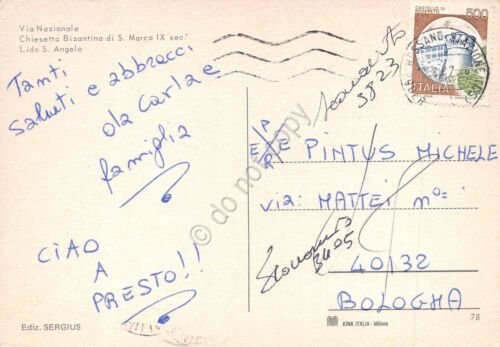 Via Nazionale
Chiesetta Bizantina di S. Marco IX sec.
Lido S. Angelo
Tanti
saluti e abbracci
da Carla e
famiglia
CIAO
A
PRESTO!!
Ediz. SERGIUS
CASTELLO DI
ROVERETO
500
ITALIA
ROSSANO STAZIONE
Sconosciuto
3823
PINTUS MICHELE
Via: MATTEI nº=
Sconosciuto
3405
40132
BOLOGNA
KINA ITALIA - Milano
78
© do not copy